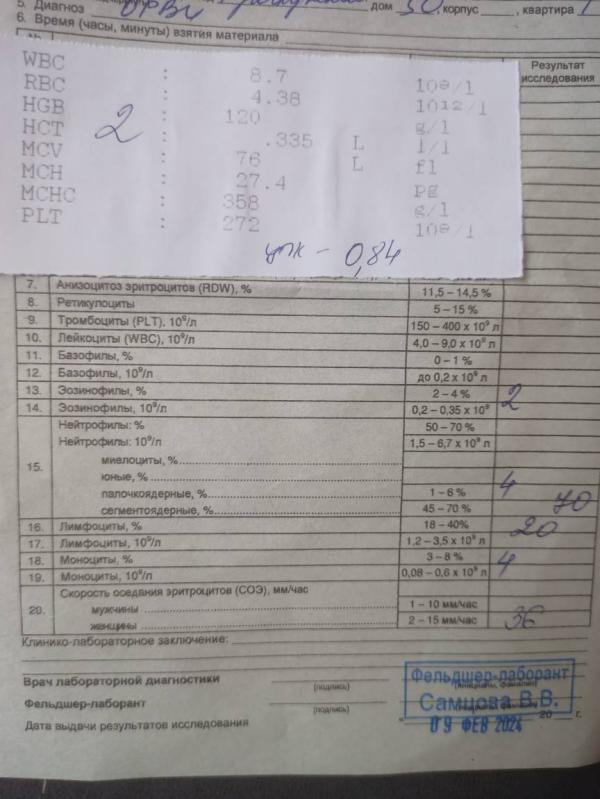 5. Диагноз ОРВИ дом 50, корпус ____, квартира 1
6. Время (часы, минуты) взятия материала
Результат исследования
WBC : 8.7 10e/l
RBC : 4.38 1012/l
HGB : 120 g/l
HCT : .335 L l/l
MCV : 76 L fl
MCH : 27.4 pg
MCHC : 358 g/l
PLT : 272 10e/l
2
цпк – 0,84
7. Анизоцитоз эритроцитов (RDW), % 11,5 – 14,5 %
8. Ретикулоциты 5 – 15 %
9. Тромбоциты (PLT), 10⁹/л 150 – 400 x 10⁹ л
10. Лейкоциты (WBC), 10⁹/л 4,0 – 9,0 x 10⁹ л
11. Базофилы, % 0 – 1 %
12. Базофилы, 10⁹/л до 0,2 x 10⁹ л
13. Эозинофилы, % 2 – 4 % 2
14. Эозинофилы, 10⁹/л 0,2 – 0,35 x 10⁹
15. Нейтрофилы: % 50 – 70 %
Нейтрофилы: 10⁹/л 1,5 – 6,7 x 10⁹ л
миелоциты, %
юные, %
палочкоядерные, % 1 – 6 % 4
сегментоядерные, % 45 – 70 % 70
16. Лимфоциты, % 18 – 40% 20
17. Лимфоциты, 10⁹/л 1,2 – 3,5 x 10⁹ л
18. Моноциты, % 3 – 8 % 4
19. Моноциты, 10⁹/л 0,08 – 0,6 x 10⁹ л
20. Скорость оседания эритроцитов (СОЭ), мм/час
мужчины 1 – 10 мм/час
женщины 2 – 15 мм/час 36
Клинико-лабораторное заключение:
Врач лабораторной диагностики
(подпись)
Фельдшер-лаборант
(подпись)
Фельдшер-лаборант
Самцова В.В.
Дата выдачи результатов исследования
09 ФЕВ 2024
20 г.